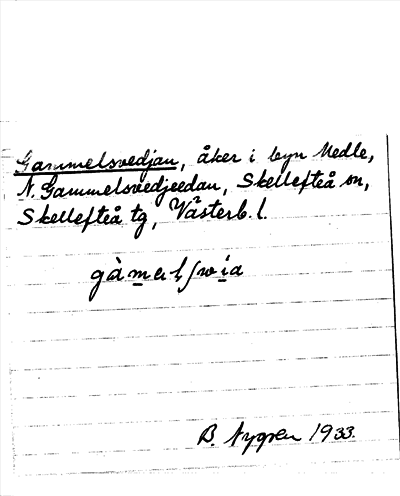 Gammelsvedjan, åker i byn Medle,
N. Gammelsvedjeedan, Skellefteå sn,
Skellefteå tg, Västerb. l.
B. Nygren 1933.